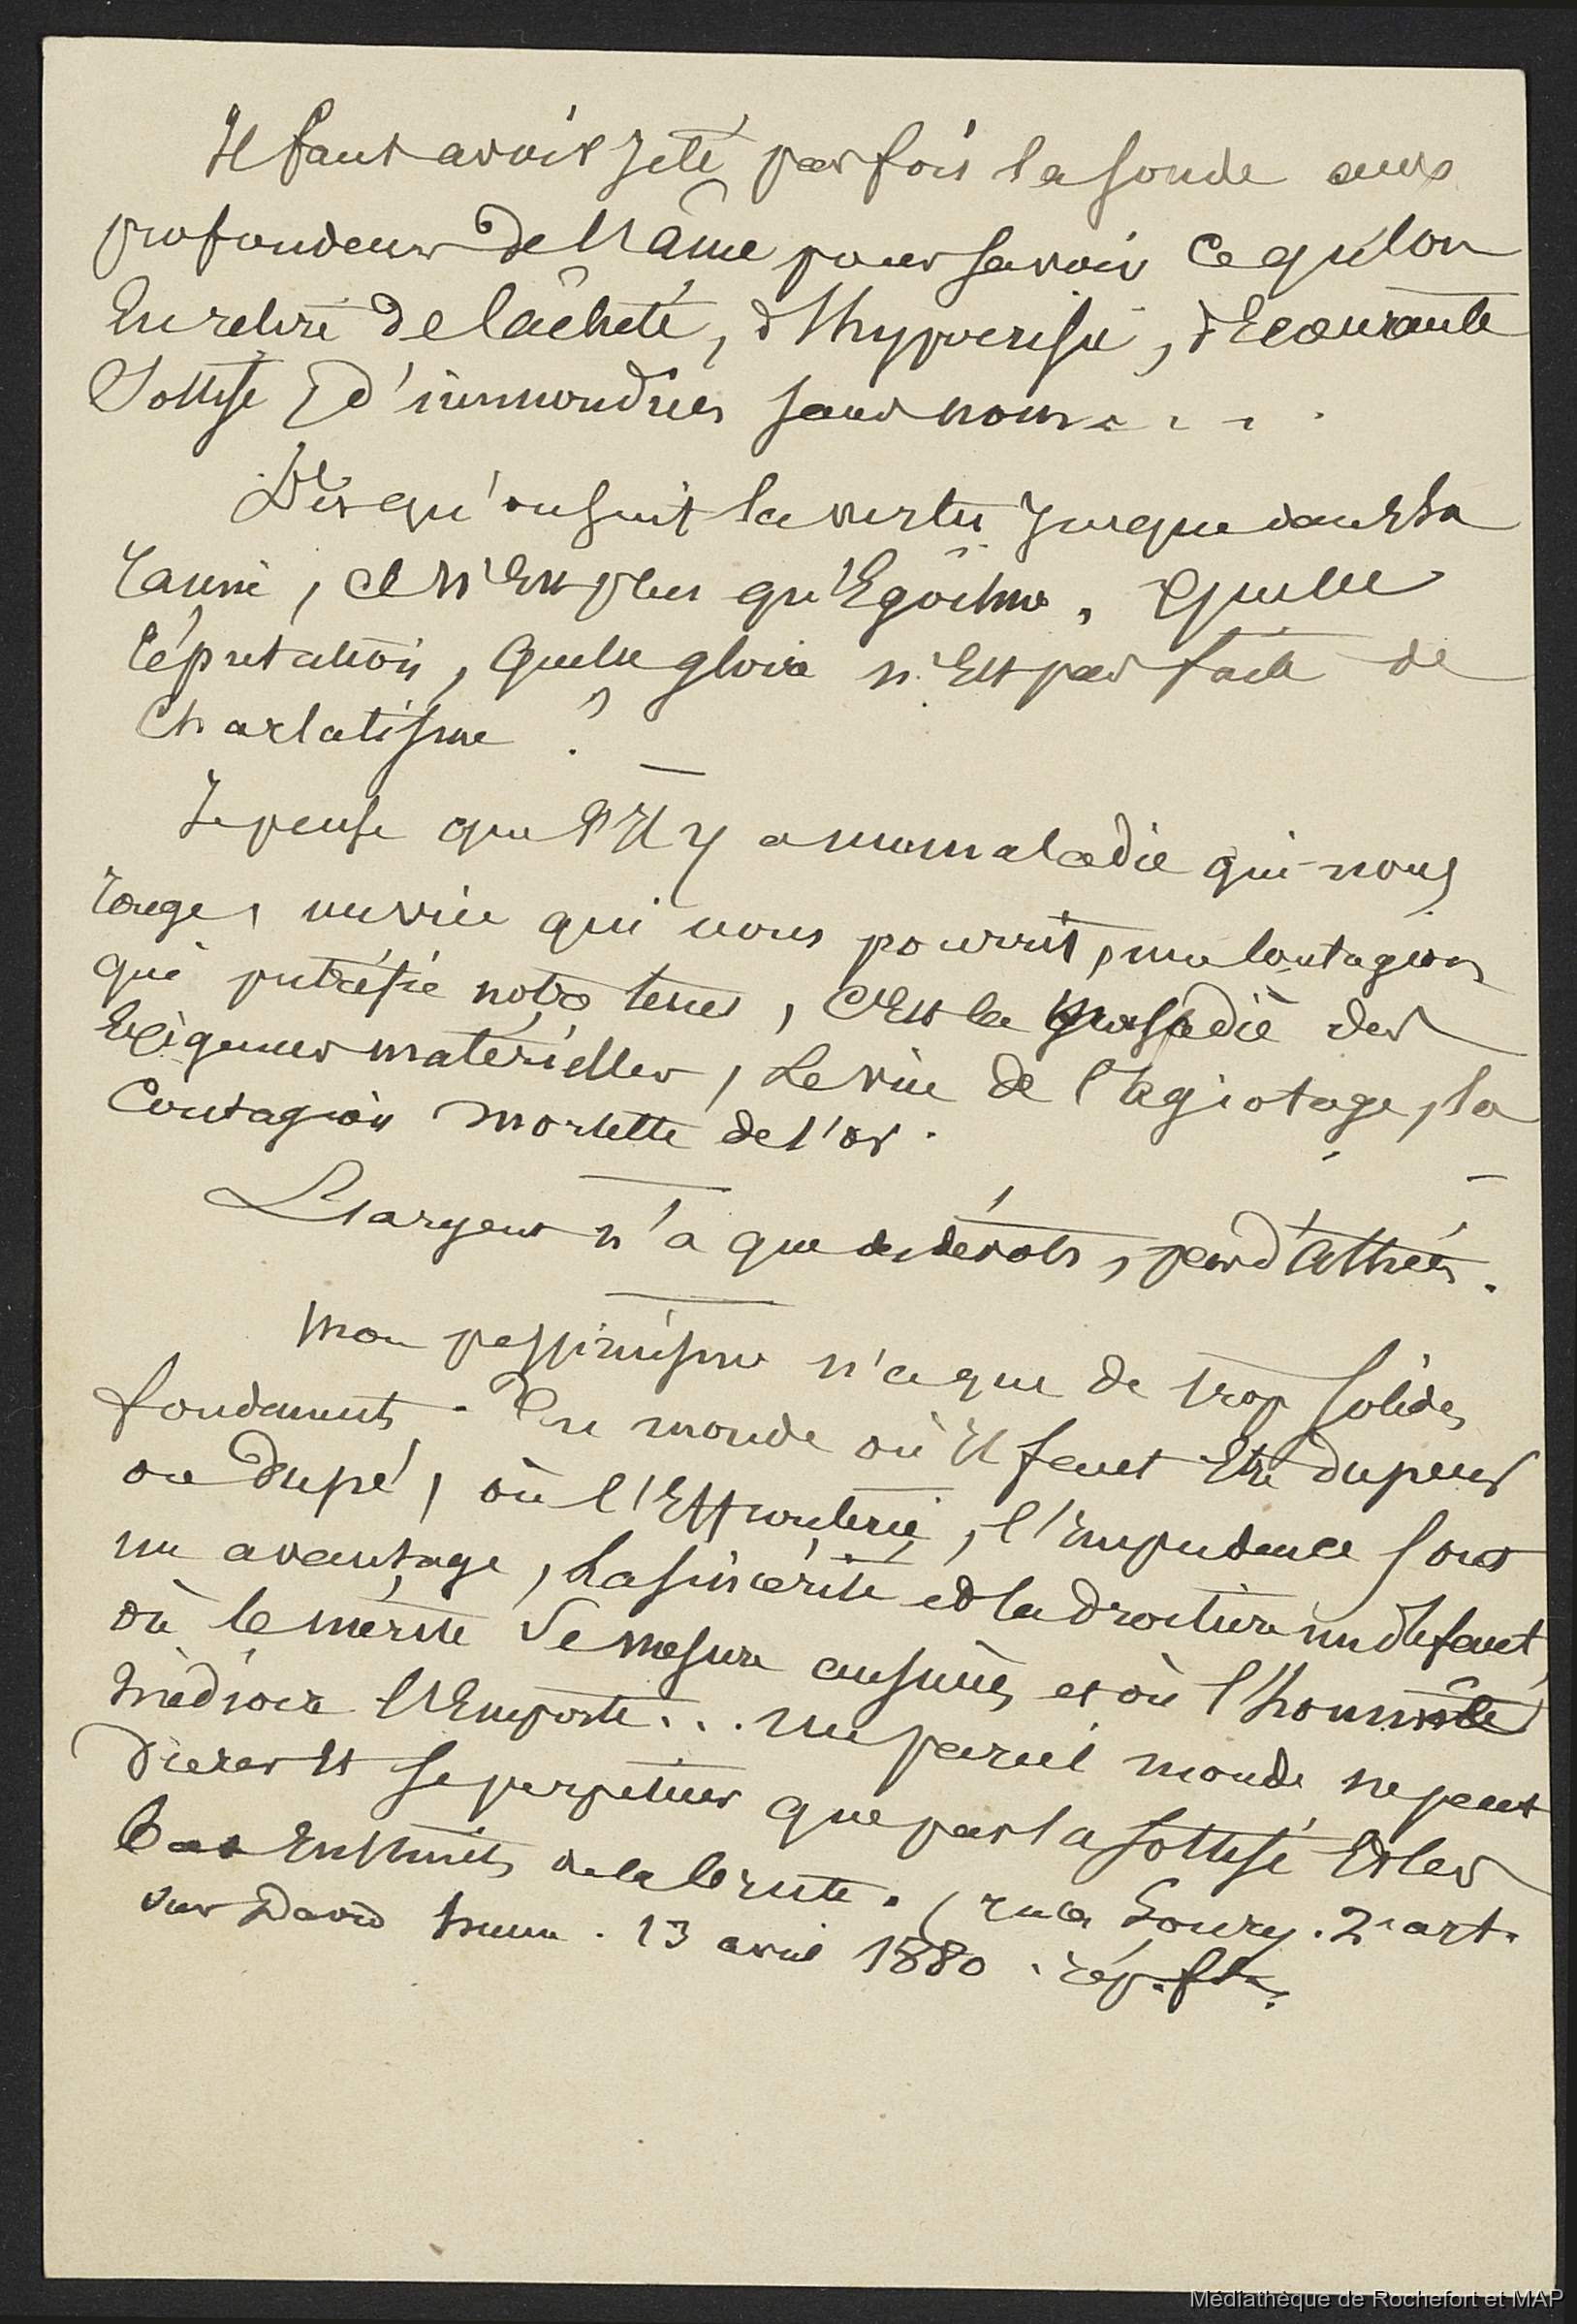 Il faut avoir jeté parfois la sonde aux
profondeurs de l'âme pour savoir ce qu'on
En retire de lâcheté, d'hypocrisie, d'Ecœurante
Sottise & d'immondices sans nom . . . .
Dès qu'on suit la vertu jusque dans sa
racine, elle n'Est plus qu'Egoïsme. Quelle
réputation, quelle gloire n'Est pas faite de
Charlatisme ?
Je pense qu'Il y a une maladie qui nous
ronge, un vice qui nous pourrit, une contagion
qui putréfie notre temps, C'Est la maladie des
Exigences matérielles, Le vice de l'agiotage, la
Contagion mortelle de l'or.
L'argent n'a que des dévots, pas d'athées.
Mon pessimisme n'a que de trop solides
fondements. Un monde où Il faut Etre dupeur
ou dupé, où l'Effronterie, l'Impudence sont
un avantage, La sincérité et la droiture un défaut,
où le mérite se mesure au succès et où l'homme
médiocre l'Emporte... un pareil monde ne peut
durer Et se perpétuer que par la sottise Et les
bas Instincts de la brute. ( 2e art.
sur David Hume. 13 avril 1880. rép. fse.
Médiathèque de Rochefort et MAP